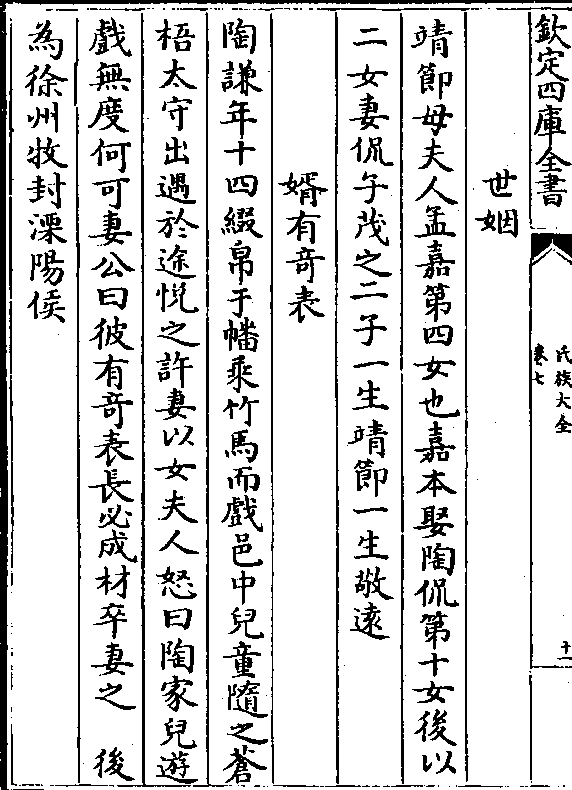 欽定四庫全書
氏族大全
卷七
十一
世姻
靖節母夫人孟嘉第四女也嘉本娶陶侃第十女後以
二女妻侃子茂之二子一生靖節一生敬遠
婿有竒表
陶謙年十四綴帛于幡乘竹馬而戲邑中兒童隨之蒼
梧太守出遇於途悅之許妻以女夫人怒曰陶家兒遊
戲無度何可妻公曰彼有竒表長必成材卒妻之　後
為徐州牧封溧陽侯